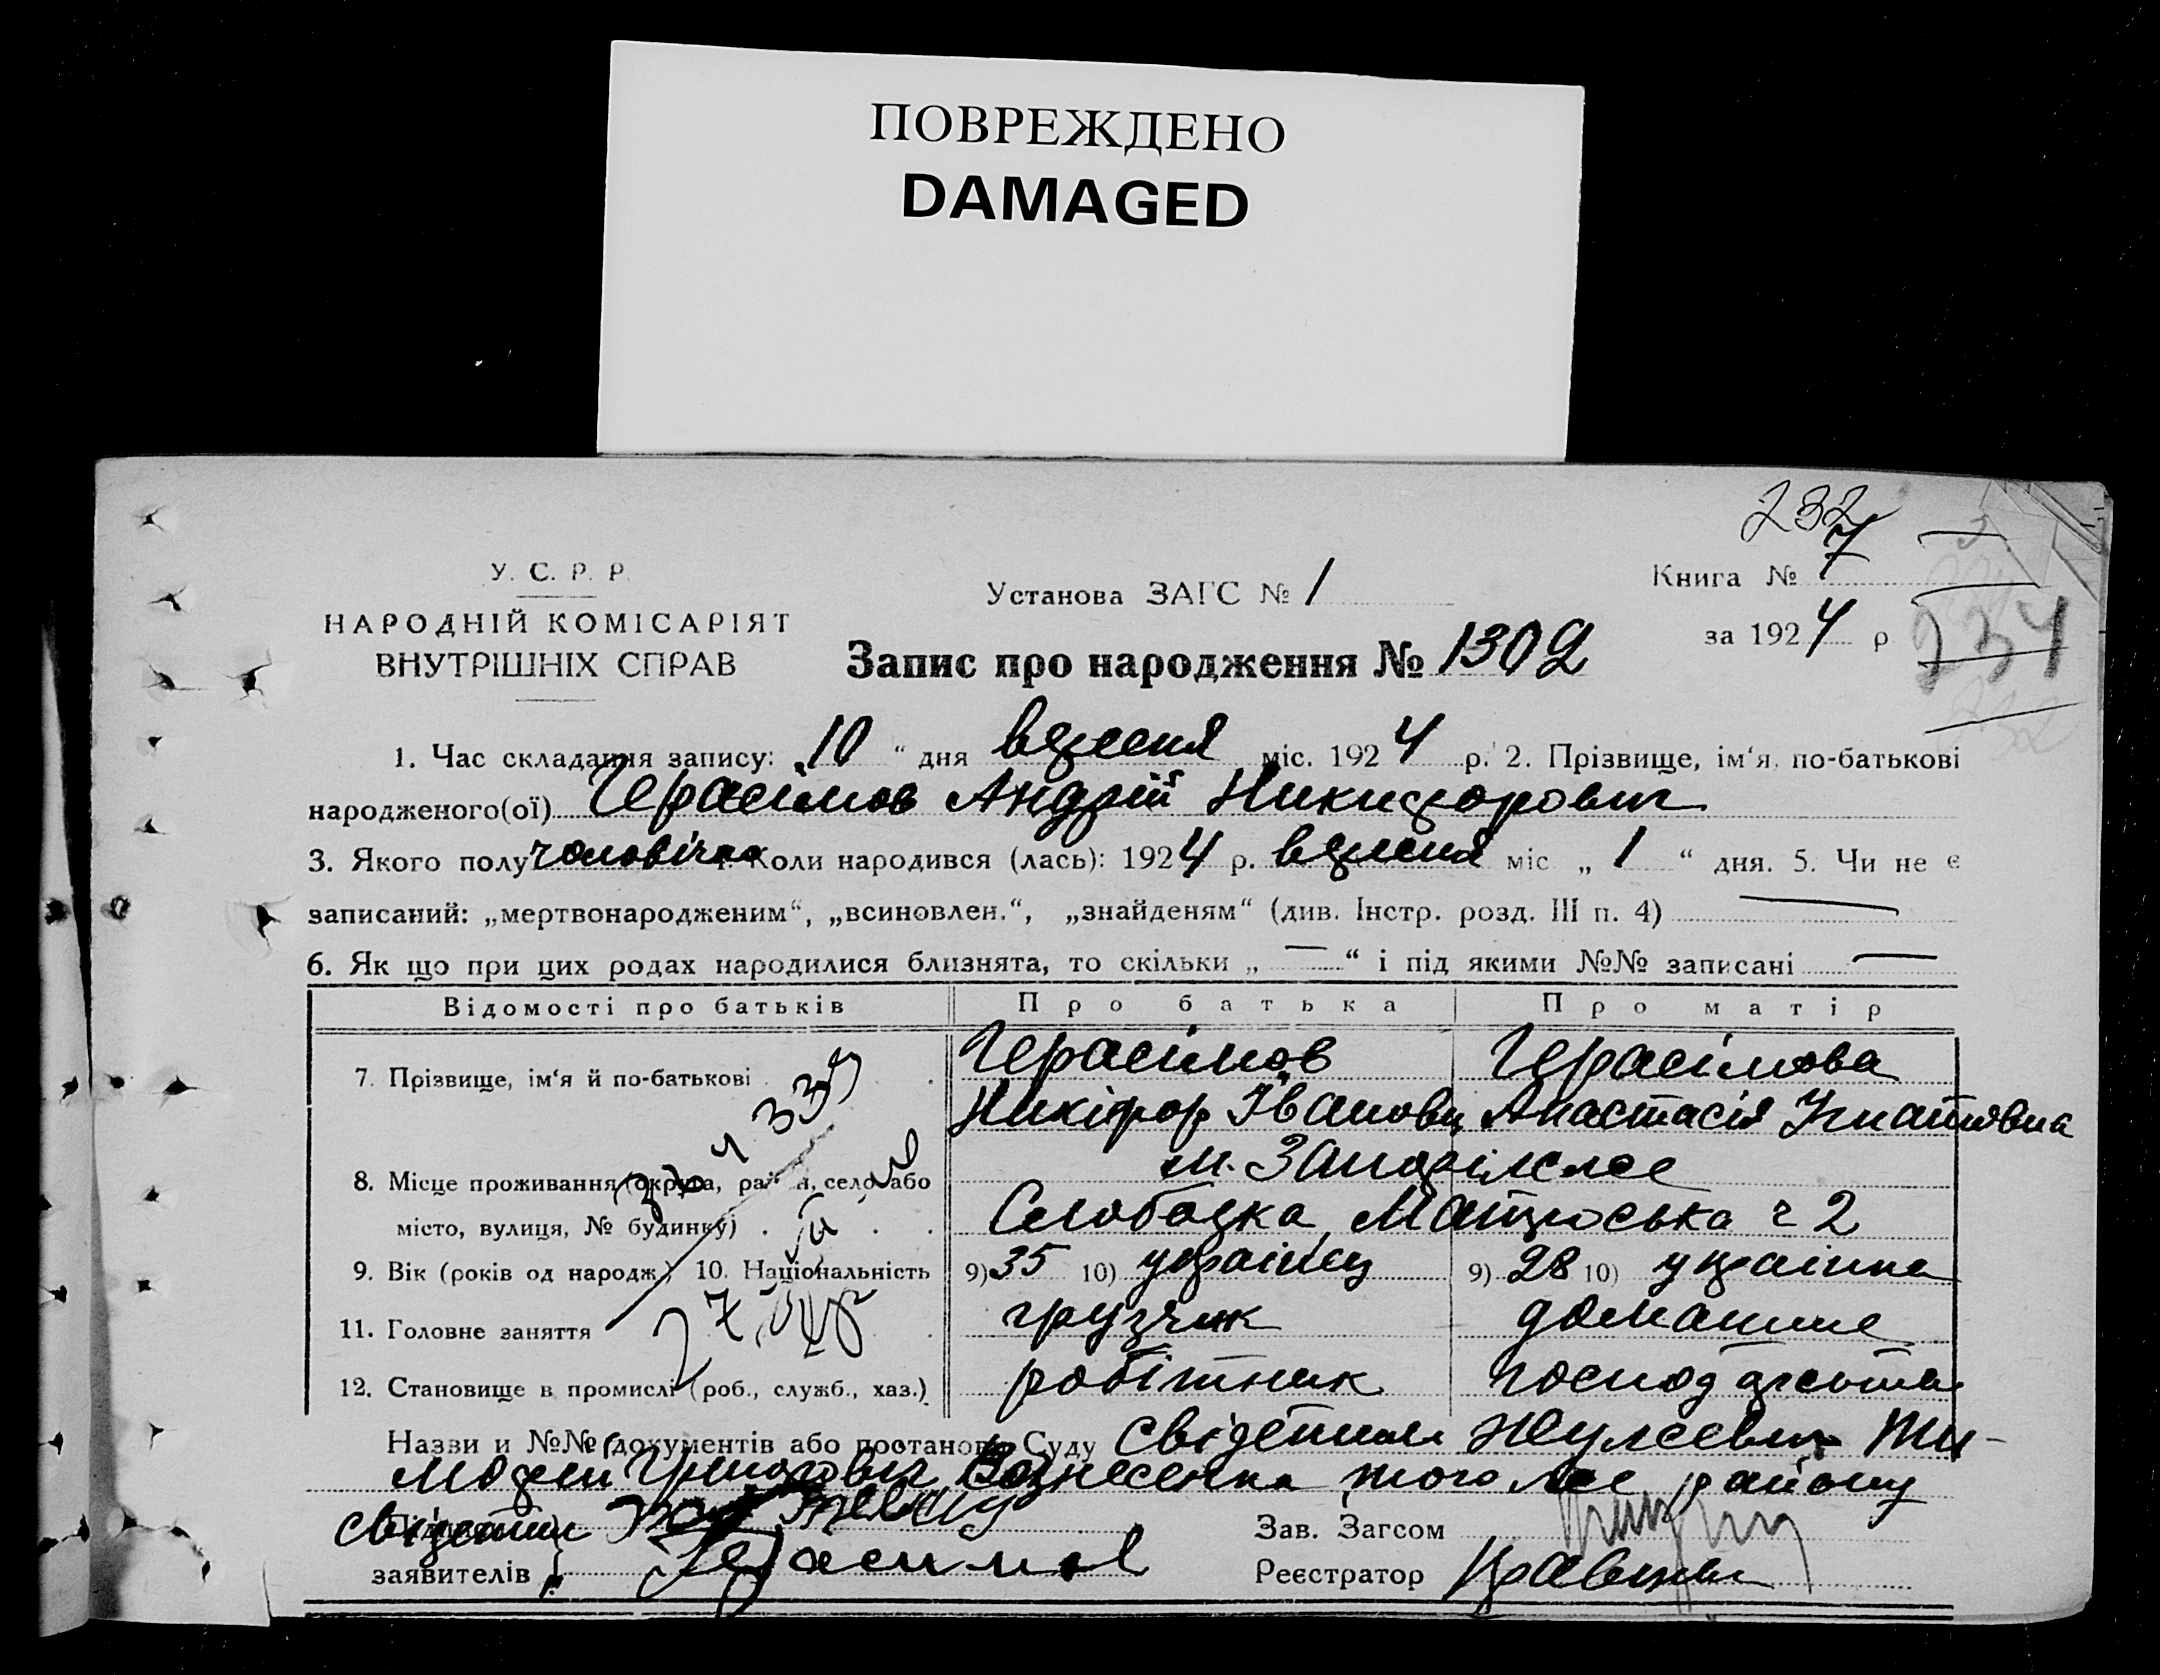 ПОВРЕЖДЕНО
DAMAGED
232
У. С. Р. Р.
НАРОДНІЙ КОМІСАРІЯТ
ВНУТРІШНІХ СПРАВ
Установа ЗАГС № 1
Книга № 7
за 1924 р
234
Запис про народження № 1302
1. Час складання запису: „10“ дня вересня міс. 1924 р. 2. Прізвище, ім‘я, по-батькові
народженого(ої) Герасімов Андрій Никифорович
3. Якого полу чоловічого Коли народився (лась): 1924 р. вересня міс „1“ дня. 5. Чи не є
записаний: „мертвонародженим“, „всиновлен.“, „знайденям“ (див. Інстр. розд. III п. 4) —
6. Як що при цих родах народилися близнята, то скільки „—“ і під якими №№ записані —
Відомості про батьків Про батька Про матір
7. Прізвище, ім‘я й по-батькові Герасімов Герасімова
Никіфор Іванович Анастасія Игнатовна
8. Місце проживання (округа, район, село або м. Запоріжжє
місто, вулиця, № будинку) Слободка,
9. Вік (років од народж.) 10. Національність 9) 35 10) українец 9) 28 10) украінка
11. Головне заняття грузчик домашнє
12. Становище в промислі (роб., служб., хаз.) робітник господарство
Назви и №№ документів або постанова Суду Свідетели Ти-
мофей Вознесенка того же району
свідетели
Зав. Загсом
заявителів Герасимов
Реєстратор